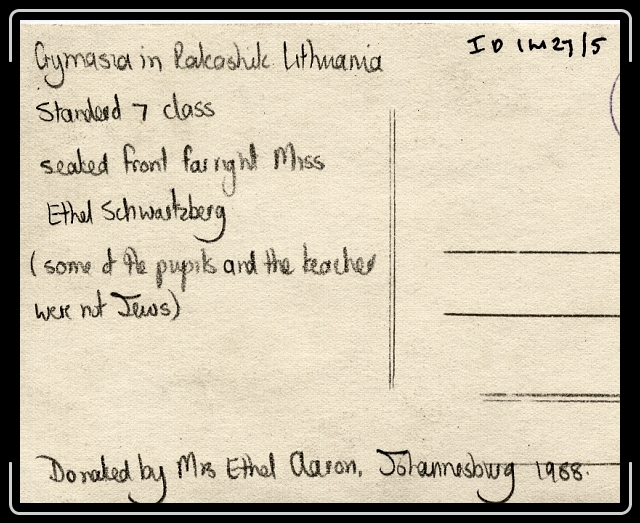 ID 1M27/5
Gymasia in Rakashik Lithuania
Standard 7 class
seated front far right Miss
Ethel Schwartzberg
(some of the pupils and the teacher
were not Jews)
Donated by Mrs Ethel Aaron, Johannesburg 1988.